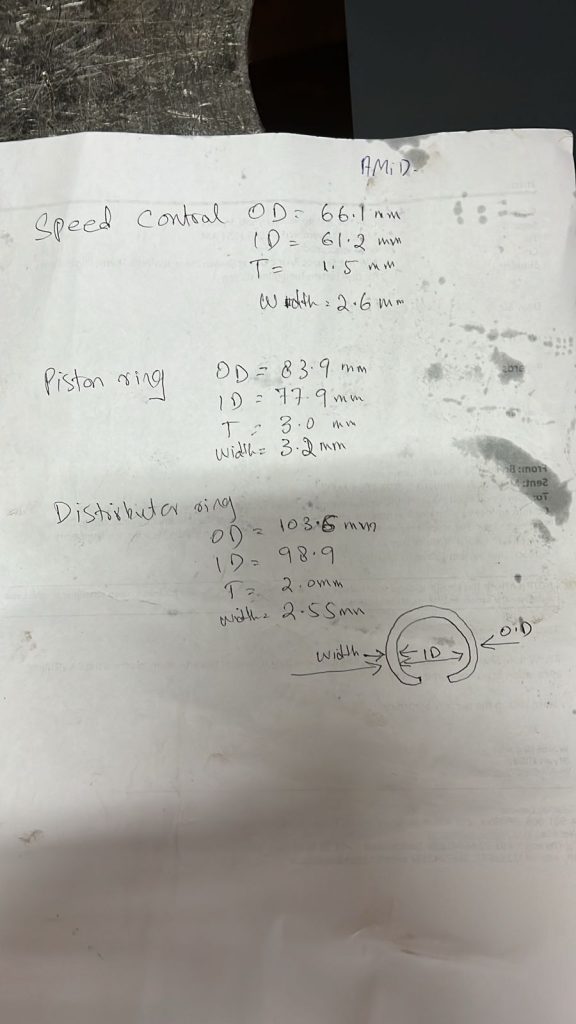 AMiD.
Speed Control OD = 66.1 mm
ID = 61.2 mm
T = 1.5 mm
Width = 2.6 mm
Piston ring OD = 83.9 mm
ID = 77.9 mm
T = 3.0 mm
width = 3.2 mm
Distirbuter ring
OD = 103.6 mm
ID = 98.9
T = 2.0mm
width = 2.55mm
O.D
width
ID
From: B
Sent:
To: